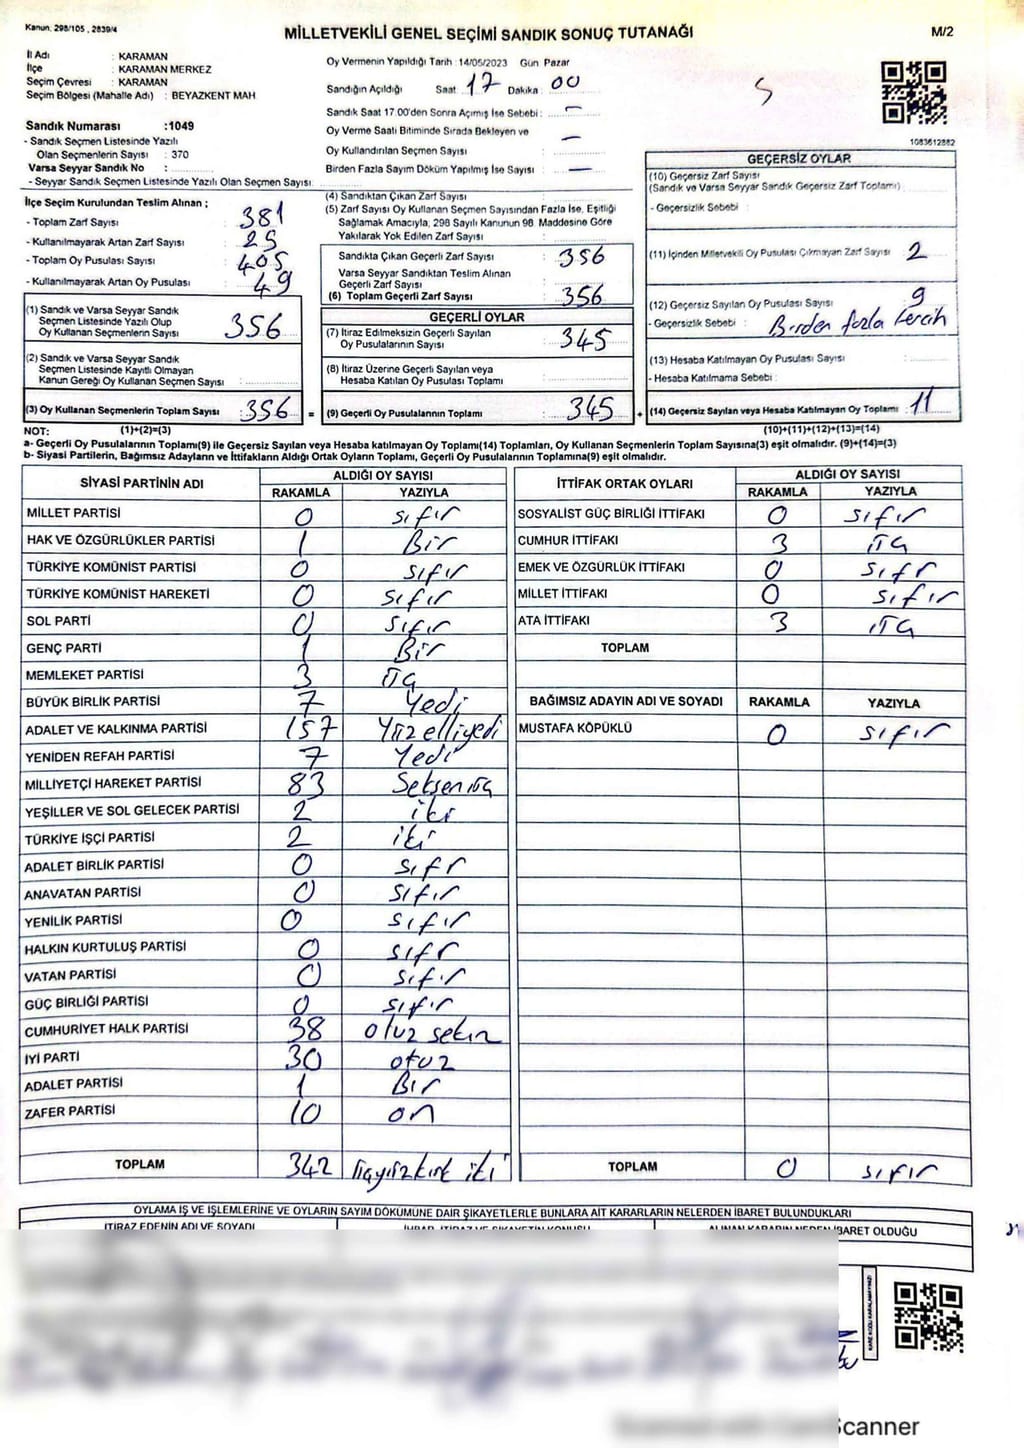 Kanun. 298/105 , 2839/4
MİLLETVEKİLİ GENEL SEÇİMİ SANDIK SONUÇ TUTANAĞI
M/2
İl Adı : KARAMAN
İlçe : KARAMAN MERKEZ
Seçim Çevresi : KARAMAN
Seçim Bölgesi (Mahalle Adı) : BEYAZKENT MAH
Oy Vermenin Yapıldığı Tarih :14/05/2023 Gün Pazar
Sandığın Açıldığı Saat : 17 Dakika : 00
Sandık Saat 17.00'den Sonra Açılmış İse Sebebi : —
Oy Verme Saati Bitiminde Sırada Bekleyen ve
Oy Kullandırılan Seçmen Sayısı : —
Birden Fazla Sayım Döküm Yapılmış İse Sayısı : —
Sandık Numarası :1049
- Sandık Seçmen Listesinde Yazılı
Olan Seçmenlerin Sayısı : 370
Varsa Seyyar Sandık No :
- Seyyar Sandık Seçmen Listesinde Yazılı Olan Seçmen Sayısı:
1083612882
İlçe Seçim Kurulundan Teslim Alınan ;
- Toplam Zarf Sayısı : 381
- Kullanılmayarak Artan Zarf Sayısı : 25
- Toplam Oy Pusulası Sayısı : 405
- Kullanılmayarak Artan Oy Pusulası : 49
(1) Sandık ve Varsa Seyyar Sandık
Seçmen Listesinde Yazılı Olup
Oy Kullanan Seçmenlerin Sayısı : 356
(2) Sandık ve Varsa Seyyar Sandık
Seçmen Listesinde Kayıtlı Olmayan
Kanun Gereği Oy Kullanan Seçmen Sayısı :
(3) Oy Kullanan Seçmenlerin Toplam Sayısı : 356 =
(4) Sandıktan Çıkan Zarf Sayısı :
(5) Zarf Sayısı Oy Kullanan Seçmen Sayısından Fazla İse, Eşitliği
Sağlamak Amacıyla, 298 Sayılı Kanunun 98. Maddesine Göre
Yakılarak Yok Edilen Zarf Sayısı :
Sandıkta Çıkan Geçerli Zarf Sayısı : 356
Varsa Seyyar Sandıktan Teslim Alınan
Geçerli Zarf Sayısı :
(6) Toplam Geçerli Zarf Sayısı : 356
GEÇERLİ OYLAR
(7) İtiraz Edilmeksizin Geçerli Sayılan
Oy Pusulalarının Sayısı : 345
(8) İtiraz Üzerine Geçerli Sayılan veya
Hesaba Katılan Oy Pusulası Toplamı :
(9) Geçerli Oy Pusulalarının Toplamı : 345 +
GEÇERSİZ OYLAR
(10) Geçersiz Zarf Sayısı
(Sandık ve Varsa Seyyar Sandık Geçersiz Zarf Toplamı) :
- Geçersizlik Sebebi :
(11) İçinden Milletvekili Oy Pusulası Çıkmayan Zarf Sayısı : 2
(12) Geçersiz Sayılan Oy Pusulası Sayısı : 9
- Geçersizlik Sebebi : Birden fazla tercih
(13) Hesaba Katılmayan Oy Pusulası Sayısı :
- Hesaba Katılmama Sebebi :
(14) Geçersiz Sayılan veya Hesaba Katılmayan Oy Toplamı : 11
NOT: (1)+(2)=(3) (10)+(11)+(12)+(13)=(14)
a- Geçerli Oy Pusulalarının Toplamı(9) ile Geçersiz Sayılan veya Hesaba katılmayan Oy Toplamı(14) Toplamları, Oy Kullanan Seçmenlerin Toplam Sayısına(3) eşit olmalıdır. (9)+(14)=(3)
b- Siyasi Partilerin, Bağımsız Adayların ve İttifakların Aldığı Ortak Oyların Toplamı, Geçerli Oy Pusulalarının Toplamına(9) eşit olmalıdır.
SİYASİ PARTİNİN ADI ALDIĞI OY SAYISI
RAKAMLA YAZIYLA
MİLLET PARTİSİ 0 sıfır
HAK VE ÖZGÜRLÜKLER PARTİSİ 1 Bir
TÜRKİYE KOMÜNİST PARTİSİ 0 sıfır
TÜRKİYE KOMÜNİST HAREKETİ 0 sıfır
SOL PARTİ 0 sıfır
GENÇ PARTİ 1 Bir
MEMLEKET PARTİSİ 3 üç
BÜYÜK BİRLİK PARTİSİ 7 Yedi
ADALET VE KALKINMA PARTİSİ 157 Yüz elliyedi
YENİDEN REFAH PARTİSİ 7 Yedi
MİLLİYETÇİ HAREKET PARTİSİ 83 Seksenüç
YEŞİLLER VE SOL GELECEK PARTİSİ 2 iki
TÜRKİYE İŞÇİ PARTİSİ 2 iki
ADALET BİRLİK PARTİSİ 0 sıfr
ANAVATAN PARTİSİ 0 sıfır
YENİLİK PARTİSİ 0 sıfır
HALKIN KURTULUŞ PARTİSİ 0 sıfr
VATAN PARTİSİ 0 sıfır
GÜÇ BİRLİĞİ PARTİSİ 0 sıfır
CUMHURİYET HALK PARTİSİ 38 otuz sekiz
İYİ PARTİ 30 otuz
ADALET PARTİSİ 1 Bir
ZAFER PARTİSİ 10 on
TOPLAM 342 üçyüzkırk iki
İTTİFAK ORTAK OYLARI ALDIĞI OY SAYISI
RAKAMLA YAZIYLA
SOSYALİST GÜÇ BİRLİĞİ İTTİFAKI 0 sıfır
CUMHUR İTTİFAKI 3 üç
EMEK VE ÖZGÜRLÜK İTTİFAKI 0 sıfr
MİLLET İTTİFAKI 0 sıfır
ATA İTTİFAKI 3 üç
TOPLAM
BAĞIMSIZ ADAYIN ADI VE SOYADI RAKAMLA YAZIYLA
MUSTAFA KÖPÜKLÜ 0 sıfır
TOPLAM 0 sıfır
OYLAMA İŞ VE İŞLEMLERİNE VE OYLARIN SAYIM DÖKÜMÜNE DAİR ŞİKAYETLERLE BUNLARA AİT KARARLARIN NELERDEN İBARET BULUNDUKLARI
İTİRAZ EDENİN ADI VE SOYADI İHBAR, İTİRAZ VE ŞİKAYETİN KONUSU ALINAN KARARIN NEDEN İBARET OLDUĞU
KARE KODU KARALAMAYINIZ!
Scanned with CamScanner